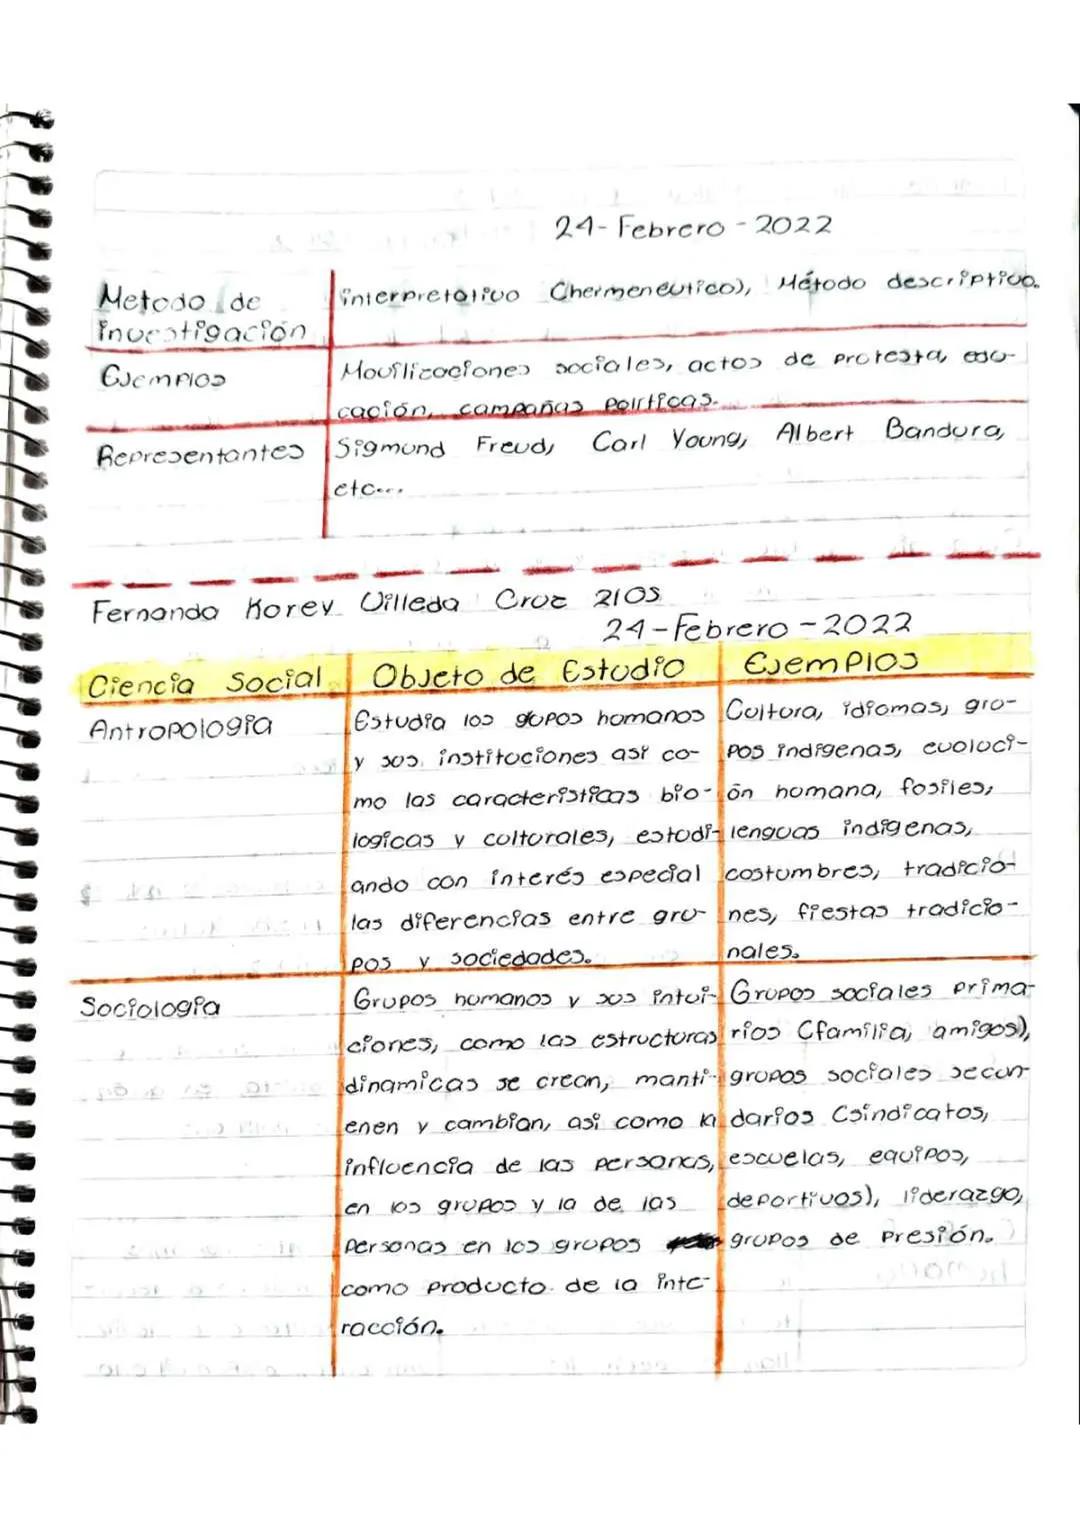 24-Febrero-2022
Metodo de
investigación
interpretativo (hermeneutico), Método descriptivo.
Ejemplos
Movilizaciones sociales, actos de protesta, edu-
cación, campañas políticas.
Representantes
Sigmund Freud, Carl Young, Albert Bandura,
etc...
Fernanda Korey Villeda Cruz 2105
24-Febrero-2022
Ciencia Social
Objeto de Estudio
Ejemplos
Antropologia
Estudia los gupos humanos
y sus instituciones así co-
mo las caracteristicas bio-
logicas y culturales, estudi-
ando con interés especial
las diferencias entre gru-
pos y sociedades.
Cultura, idiomas, gru-
pos indigenas, evoluci-
ón humana, fosiles,
lenguas indigenas,
costumbres, tradicio-
nes, fiestas tradicio-
nales.
Sociologia
Grupos humanos y sus intui-
ciones, como las estructuras
dinamicas se crean, manti-
enen y cambian, así como la
influencia de las personas,
en los grupos y la de las
personas en los grupos
como producto de la inte-
racción.
Grupos sociales prima-
rios (familia, amigos),
grupos sociales secun-
darios (sindicatos,
escuelas, equipos,
deportivos), liderazgo,
grupos de presión.